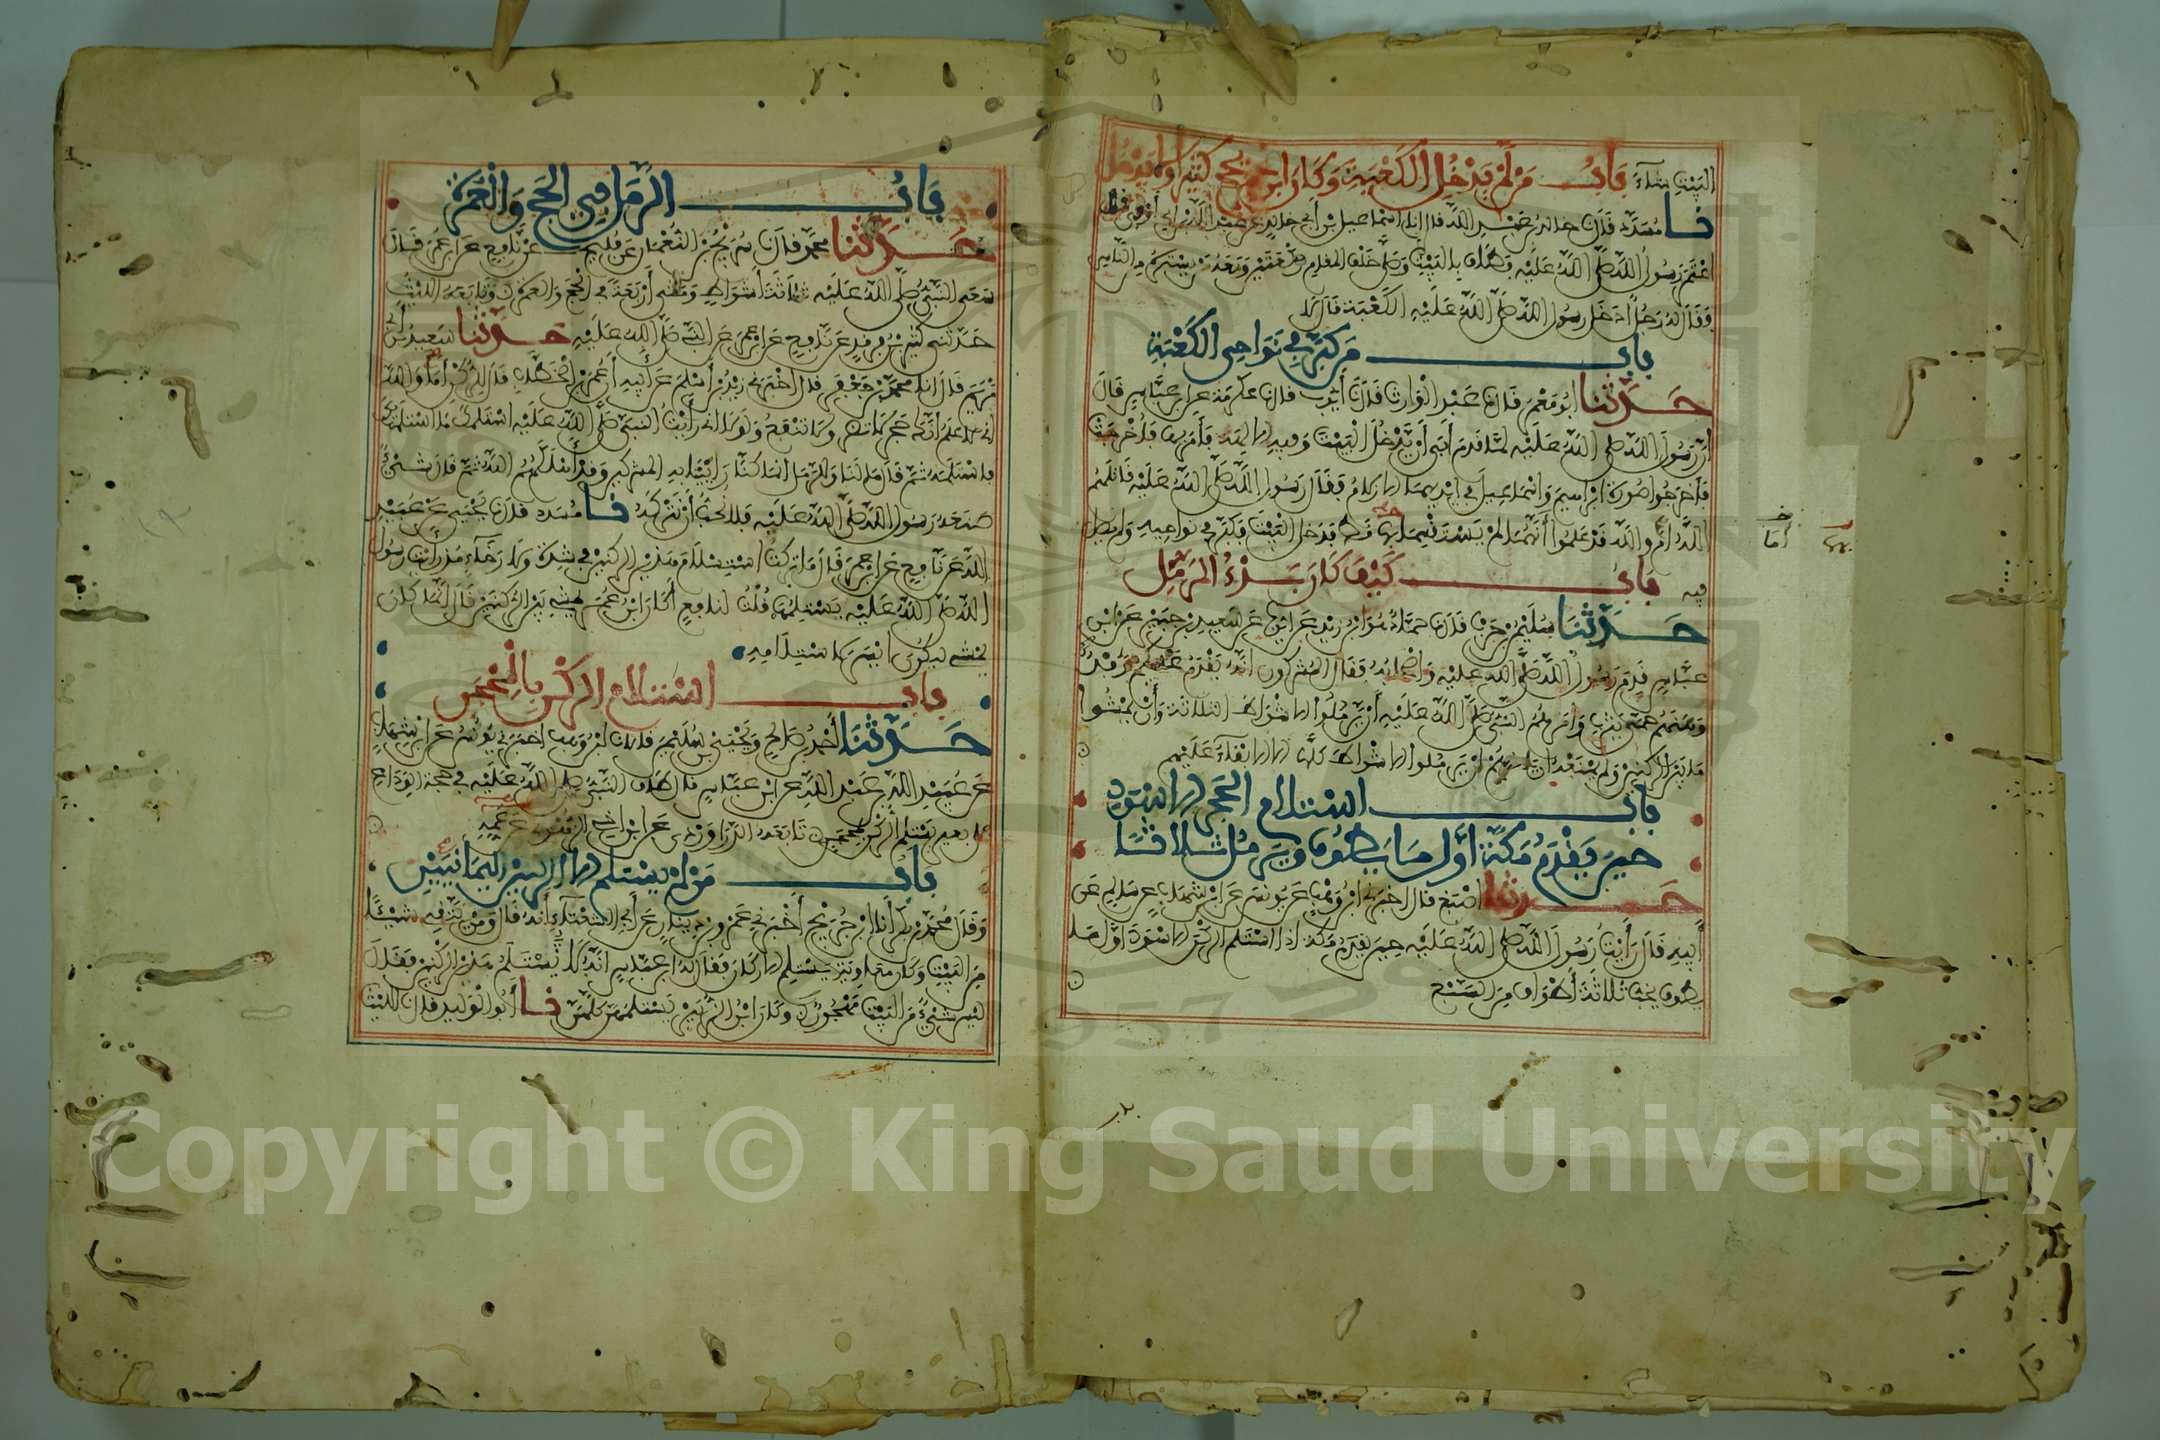 البيت شاء باب من لم يدخل الكعبة وكان ابن عمر يحج كثيرا ولا يدخل
نا مسدد قال نا خالد بن عبد الله قال انا اسماعيل بن أبي خالد عن عبد الله بن ابي أوفى قال
اعتمر رسول الله صلى الله عليه وطاف بالبيت وصلى خلف المقام ركعتين ومعه من يستره من الناس
وقال له رجل أدخل رسول الله صلى الله عليه الكعبة قال لا
باب من كبر في نواحي الكعبة
حدثنا أبو معمر قال نا عبد الوارث قال نا أيوب قال نا عكرمة عن ابن عباس قال
ان رسول الله صلى الله عليه لما قدم أبى أن يدخل البيت وفيه الالهة فأمر بها فأخرجت
فأخرجوا صورة ابراهيم واسماعيل في ايديهما الازلام فقال رسول الله صلى الله عليه قاتلهم
الله أم والله قد علموا أنهما لم يستقسما بها قط فدخل البيت فكبر في نواحيه ولم يصل
فيه باب كيف كان بدء الرمل
حدثنا سليمن بن حرب قال نا حماد هو ابن زيد عن ايوب عن سعيد بن جبير عن ابن
عباس قال قدم رسول الله صلى الله عليه وأصحابه فقال المشركون انه يقدم عليكم وقد
وهنتهم حمى يثرب وأمرهم النبي صلى الله عليه أن يرملوا الاشواط الثلاثة وأن يمشوا
ما بين الركنين ولم يمنعه ان يأمرهم ان يرملوا الاشواط كلها الا الابقاء عليهم
باب استلام الحجر الاسود
حين يقدم مكة أول ما يطوف ويرمل ثلاثا
حدثنا اصبغ قال اخبرني ابن وهب عن يونس عن ابن شهاب عن سالم عن
أبيه قال رأيت رسول الله صلى الله عليه حين يقدم مكة اذا استلم الركن الاسود أول ما
يطوف يخب ثلاثة أطواف من السبع
اما
باب الرمل في الحج والعمرة
حدثنا محمد قال نا سريج بن النعمان عن فليح عن نافع عن ابن عمر قال
سعى النبي صلى الله عليه ثلاثة أشواط ومشى أربعة في الحج والعمرة وتابعه الليث
حدثني كثير بن فرقد عن نافع عن ابن عمر عن النبي صلى الله عليه حدثنا سعيد بن أبي
مريم قال انا محمد بن جعفر قال اخبرني زيد بن أسلم عن ابيه أن عمر بن الخطاب قال للركن أما والله
اني لاعلم انك حجر لا تضر ولا تنفع ولولا اني رأيت النبي صلى الله عليه استلمك ما استلمتك
فاستلمه ثم قال ما لنا وللرمل انما كنا راءينا به المشركين وقد أهلكهم الله ثم قال شيء
صنعه رسول الله صلى الله عليه فلا نحب أن نتركه نا مسدد قال نا يحيى عن عبيد
الله عن نافع عن ابن عمر قال ما تركت استلام هذين الركنين في شدة ولا رخاء مذ رأيت رسول
الله صلى الله عليه يستلمهما قلت لنافع أكان ابن عمر يمشي بين الركنين قال انما كان
يمشي ليكون ايسر لاستلامه
باب استلام الركن بالمحجن
حدثنا أحمد بن صالح ويحيى بن سليمن قالا نا ابن وهب اخبرني يونس عن ابن شهاب
عن عبيد الله بن عبد الله عن ابن عباس قال طاف النبي صلى الله عليه في حجة الوداع
على بعير يستلم الركن بمحجن تابعه الدراوردي عن ابن اخي الزهري عن عمه
باب من لم يستلم الا الركنين اليمانيين
وقال محمد بن بكر أنا ابن جريج أخبرني عمرو بن دينار عن أبي الشعثاء أنه قال ومن يتقي شيئا
من البيت وكان معاوية يستلم الاركان فقال له ابن عباس انه لا يستلم هذين الركنين فقال
ليس شيء من البيت مهجورا وكان ابن الزبير يستلمهن كلهن نا أبو الوليد قال نا الليث
Copyright © King Saud University